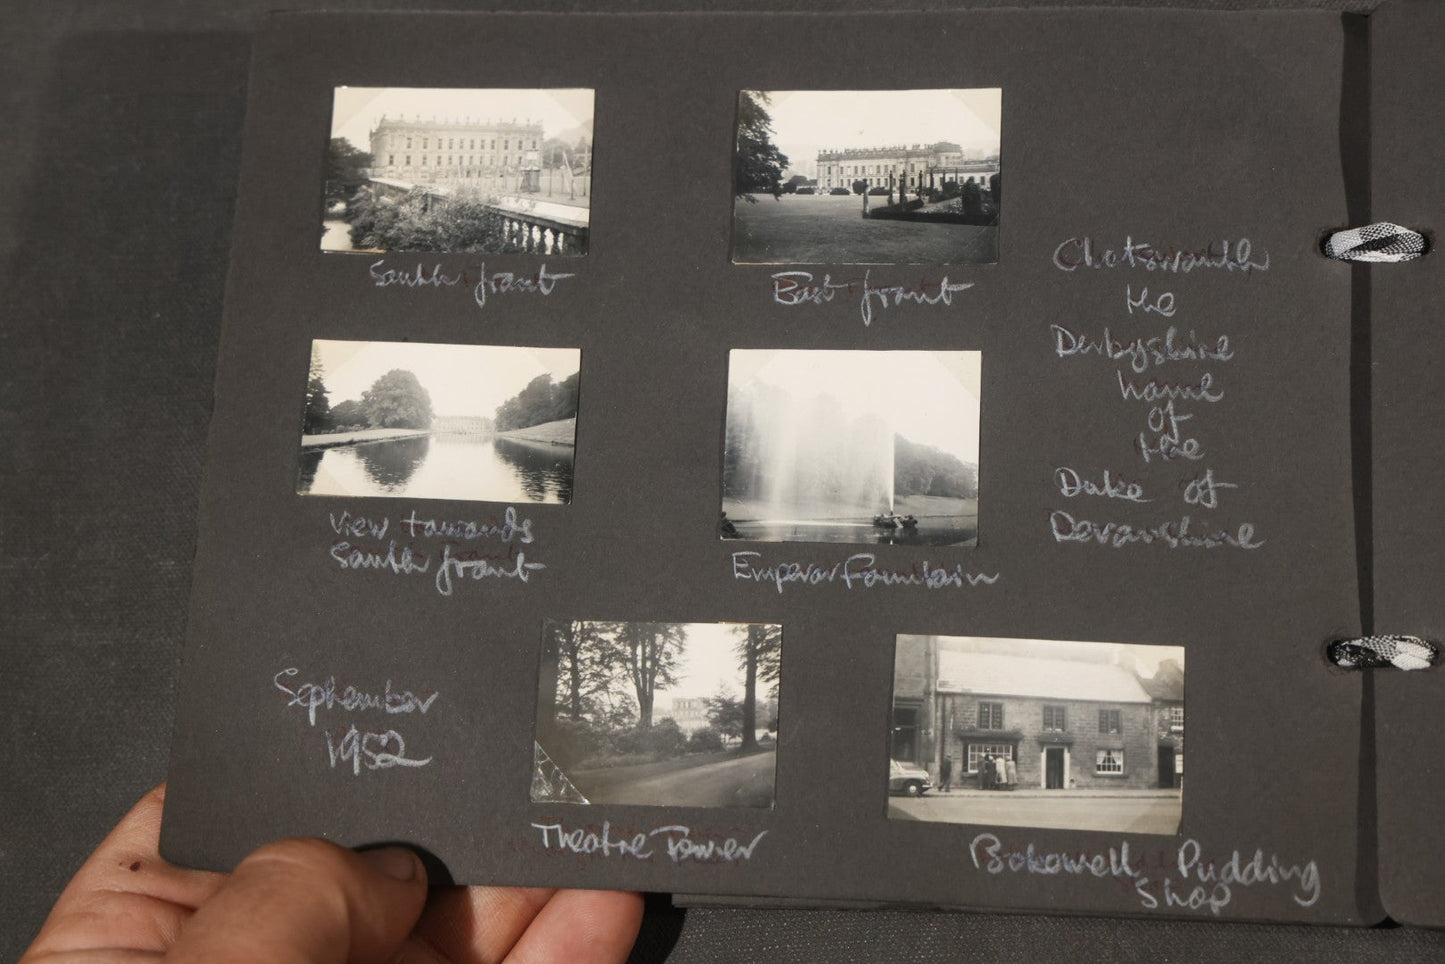 South front
East front
Chatsworth
the
Derbyshire
home
of
the
Duke of
Devonshire
View towards
South front
Emperor Fountain
September
1952
Theatre Tower
Bakewell Pudding
Shop